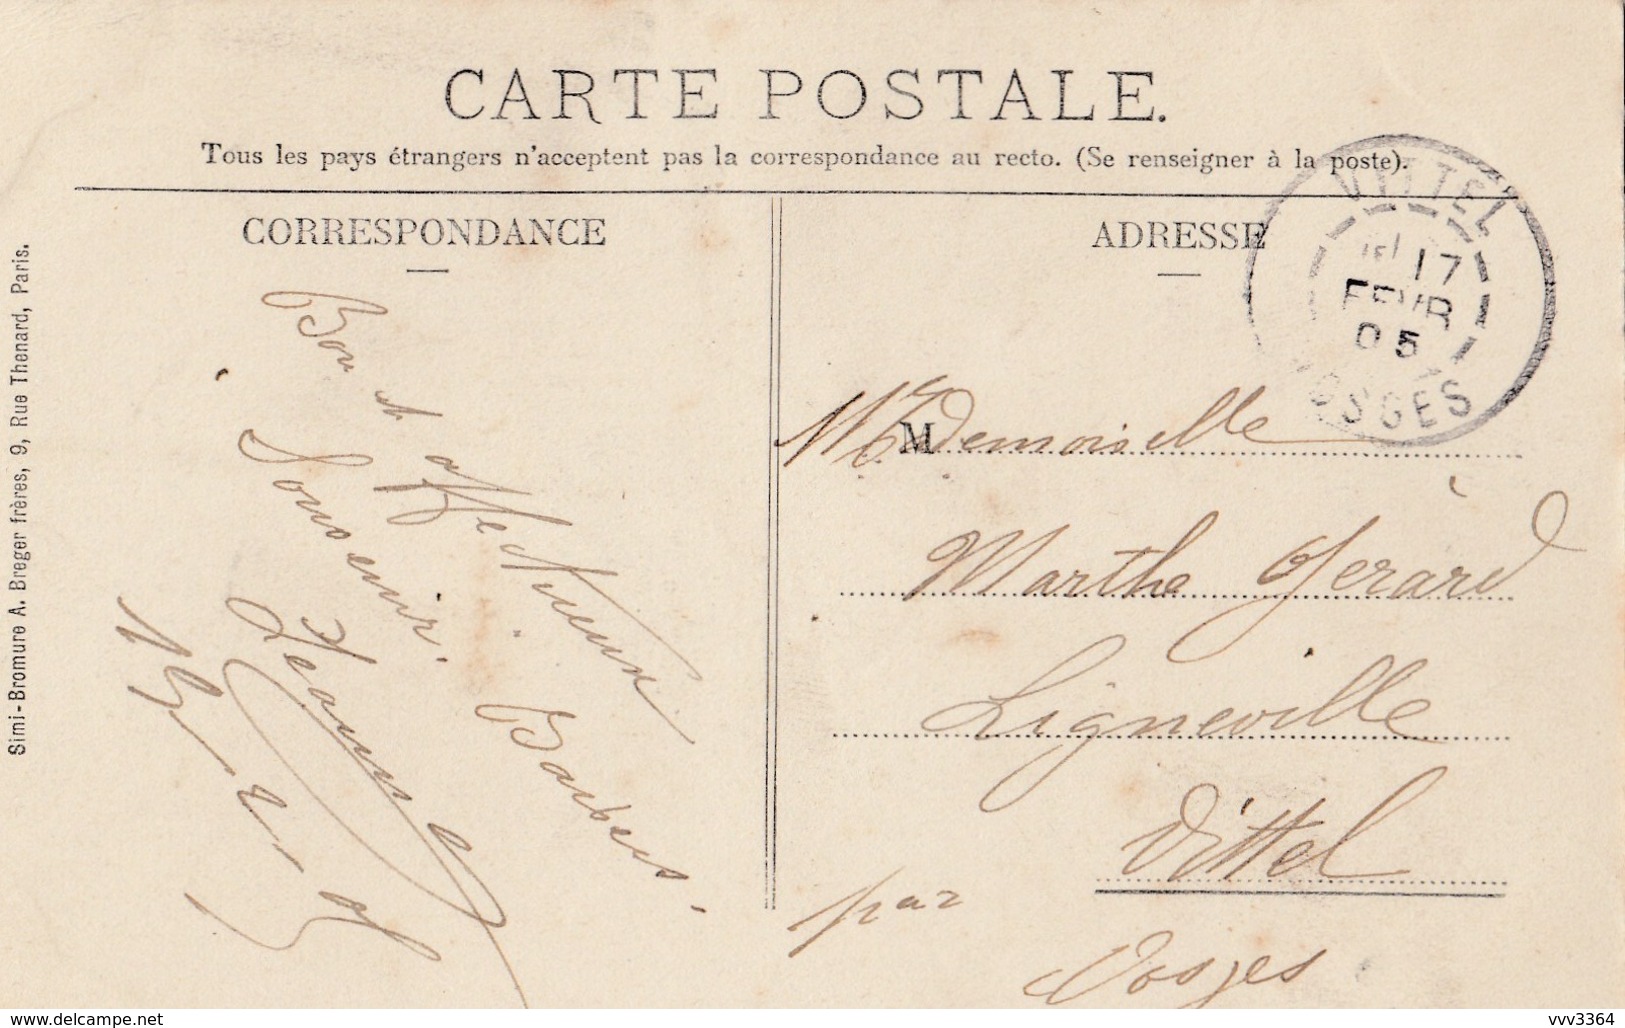 CARTE POSTALE.
Tous les pays étrangers n'acceptent pas la correspondance au recto. (Se renseigner à la poste).
CORRESPONDANCE
Bon et affectueux
Souvenir.
Simi-Bromure A. Breger frères, 9, Rue Thenard, Paris.
ADRESSE
VITTEL
17
FEVR
05
VOSGES
M
Mademoiselle
Marthe Gerard
Ligneville
par Vittel
Vosges
delcampe.net
vvv3364